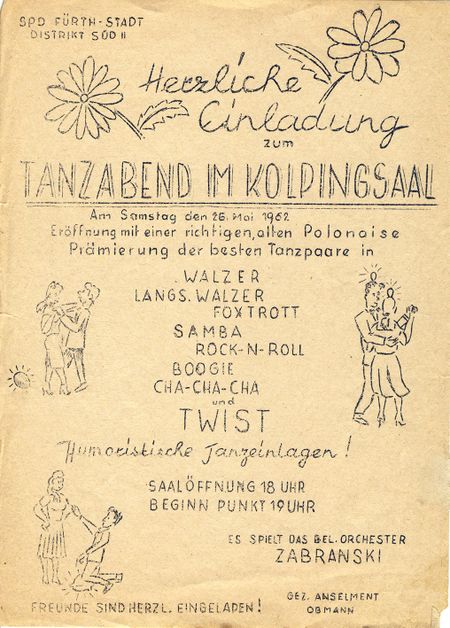 SPD FÜRTH-STADT
DISTRIKT SÜD II
Herzliche
Einladung
zum
TANZABEND IM KOLPINGSAAL
Am Samstag den 26. Mai 1962
Eröffnung mit einer richtigen, alten Polonaise
Prämierung der besten Tanzpaare in
WALZER
LANGS. WALZER
FOXTROTT
SAMBA
ROCK-N-ROLL
BOOGIE
CHA-CHA-CHA
und
TWIST
Humoristische Tanzeinlagen!
SAALÖFFNUNG 18 UHR
BEGINN PUNKT 19 UHR
ES SPIELT DAS BEL. ORCHESTER
ZABRANSKI
GEZ. ANSELMENT
OBMANN
FREUNDE SIND HERZL. EINGELADEN!